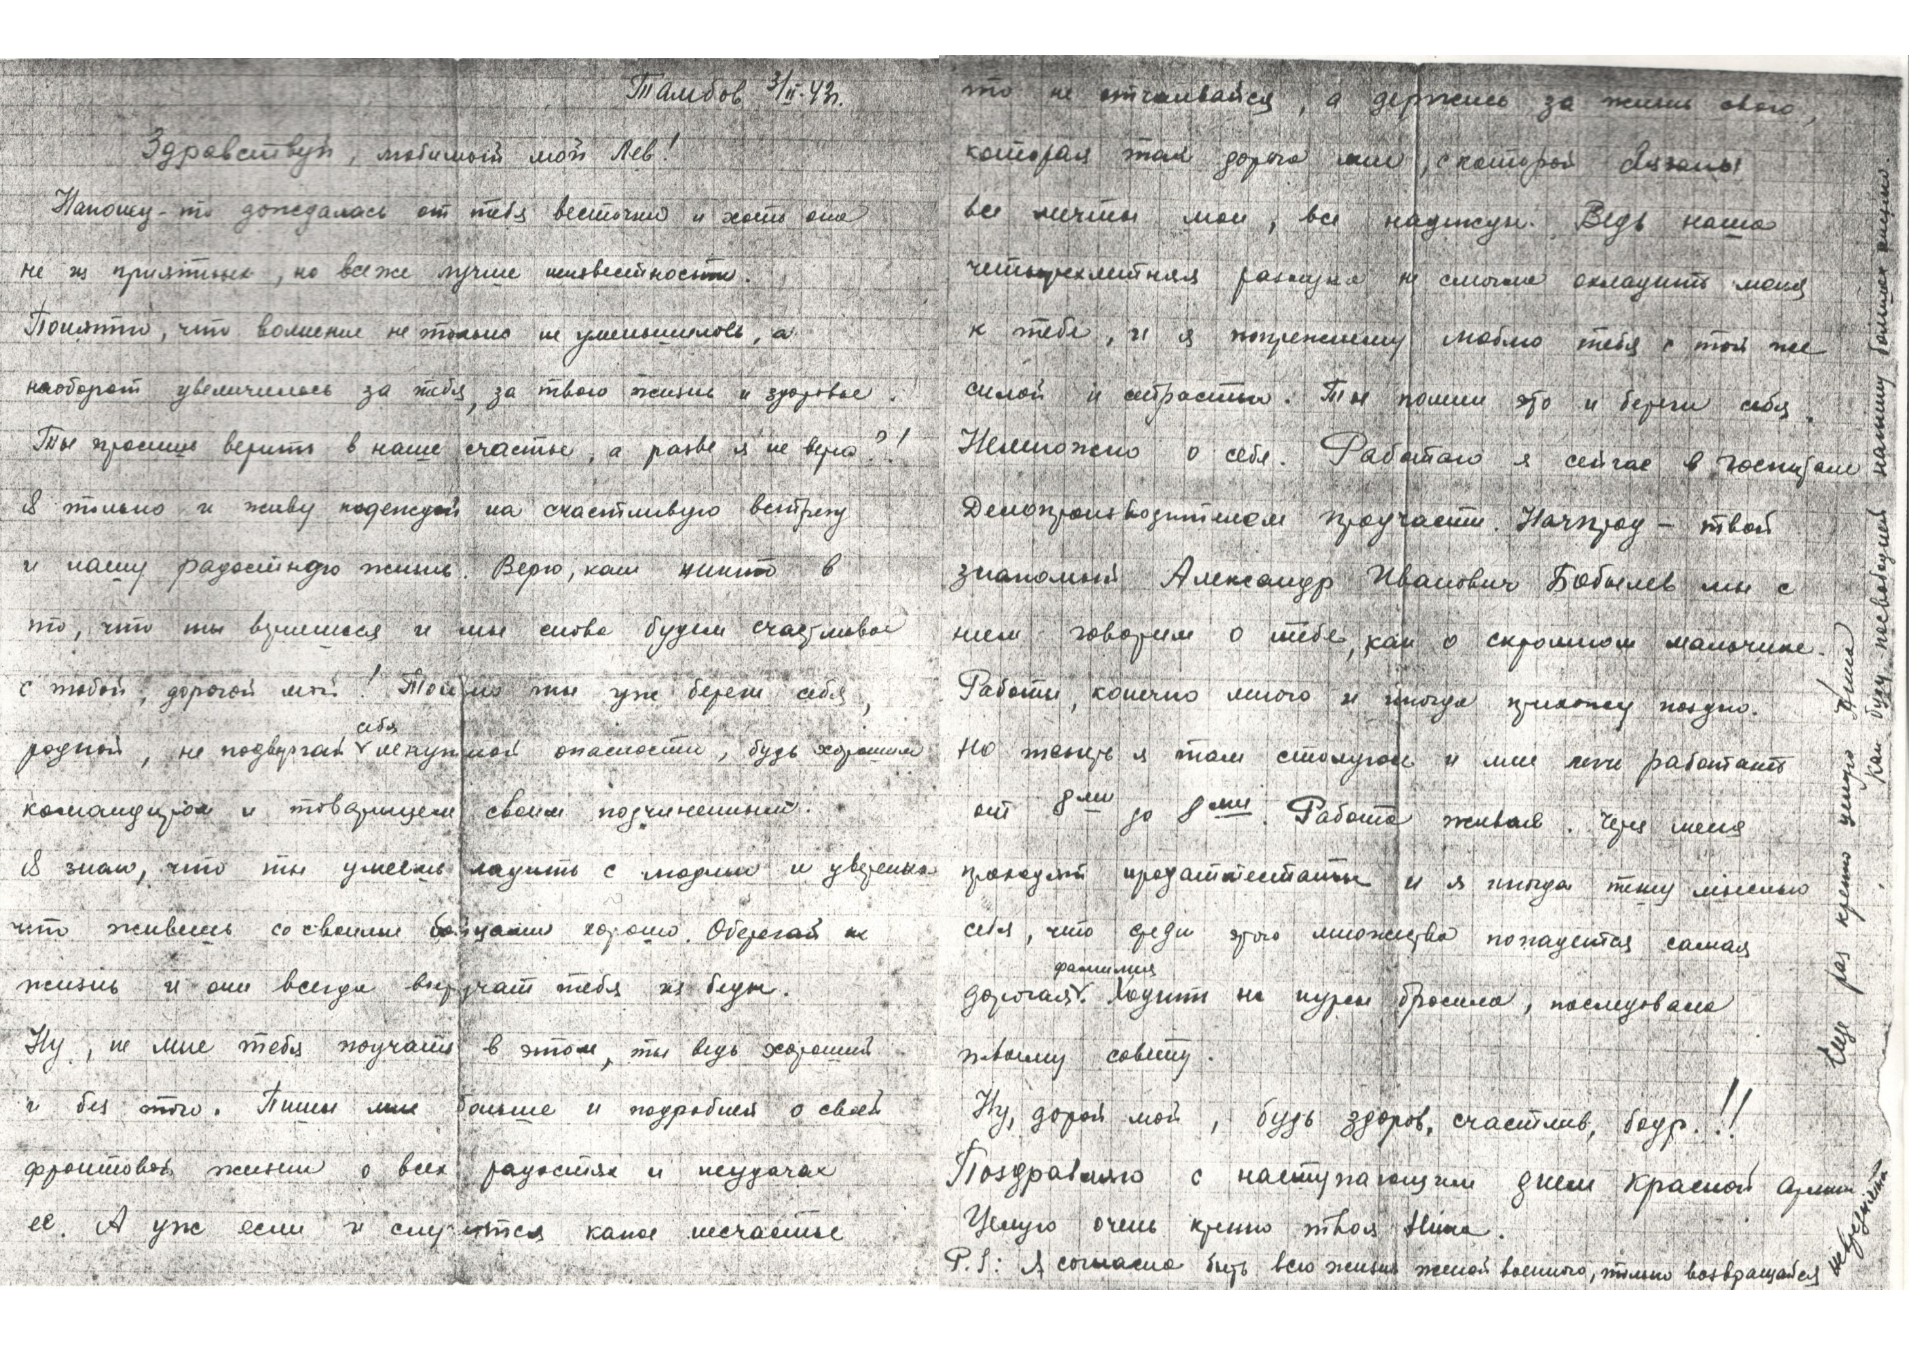 Тамбов 3/II-43г.
Здравствуй, любимый мой Лев!
Наконец-то дождалась от тебя весточки и хоть она
не из приятных, но все же лучше неизвестности.
Понятно, что волнение не только не уменьшилось, а
наоборот увеличилось за тебя, за твою жизнь и здоровье.
Ты просишь верить в наше счастье, а разве я не верю?!
Я только и живу надеждой на счастливую встречу
и нашу радостную жизнь. Верю, как никто в
то, что ты вернешься и мы снова будем счастливы
с тобой, дорогой мой! Только ты уж береги себя,
родной, не подвергай себя ненужной опасности, будь хорошим
командиром и товарищем своим подчиненным.
Я знаю, что ты умеешь ладить с людьми и уверенна
что живешь со своими бойцами хорошо. Оберегай их
жизнь и они всегда выручат тебя из беды.
Ну, не мне тебя поучать в этом, ты ведь хороший
и без этого. Пиши мне больше и подробней о своей
фронтовой жизни о всех радостях и неудачах
ее. А уж если и случится какое несчастье
то не отчаивайся, а держись за жизнь свою,
которая так дорога мне, с которой связаны
все мечты мои, все надежды. Ведь наша
четырехлетняя разлука не смогла охладить меня
к тебе, и я попрежнему люблю тебя с той же
силой и страстью. Ты помни это и береги себя.
Немножко о себе. Работаю я сейчас в госпитале
Делопроизводителем продчасти. Начпрод - твой
знакомый Александр Иванович Бобылев мы с
ним говорим о тебе, как о скромном мальчике.
Работы, конечно много и иногда прихожу поздно.
Но теперь я там столуюсь и мне легче работать
от 8ми до 8ми. Работа живая. Через меня
проходят продаттестаты и я иногда тешу мыслью
себя, что среди этого множества попадется самая
дорогая фамилия. Ходить на курсы бросила, последовала
твоему совету.
Ну, дорой мой, будь здоров, счастлив, бодр.!!
Поздравляю с наступающим днем Красной Армии
Целую очень крепко твоя Нина.
P.S: Я согласна быть всю жизнь женой военного, только возвращайся
невредимый
Еще раз крепко целую Нина
Как буду посвободней напишу большое письмо.